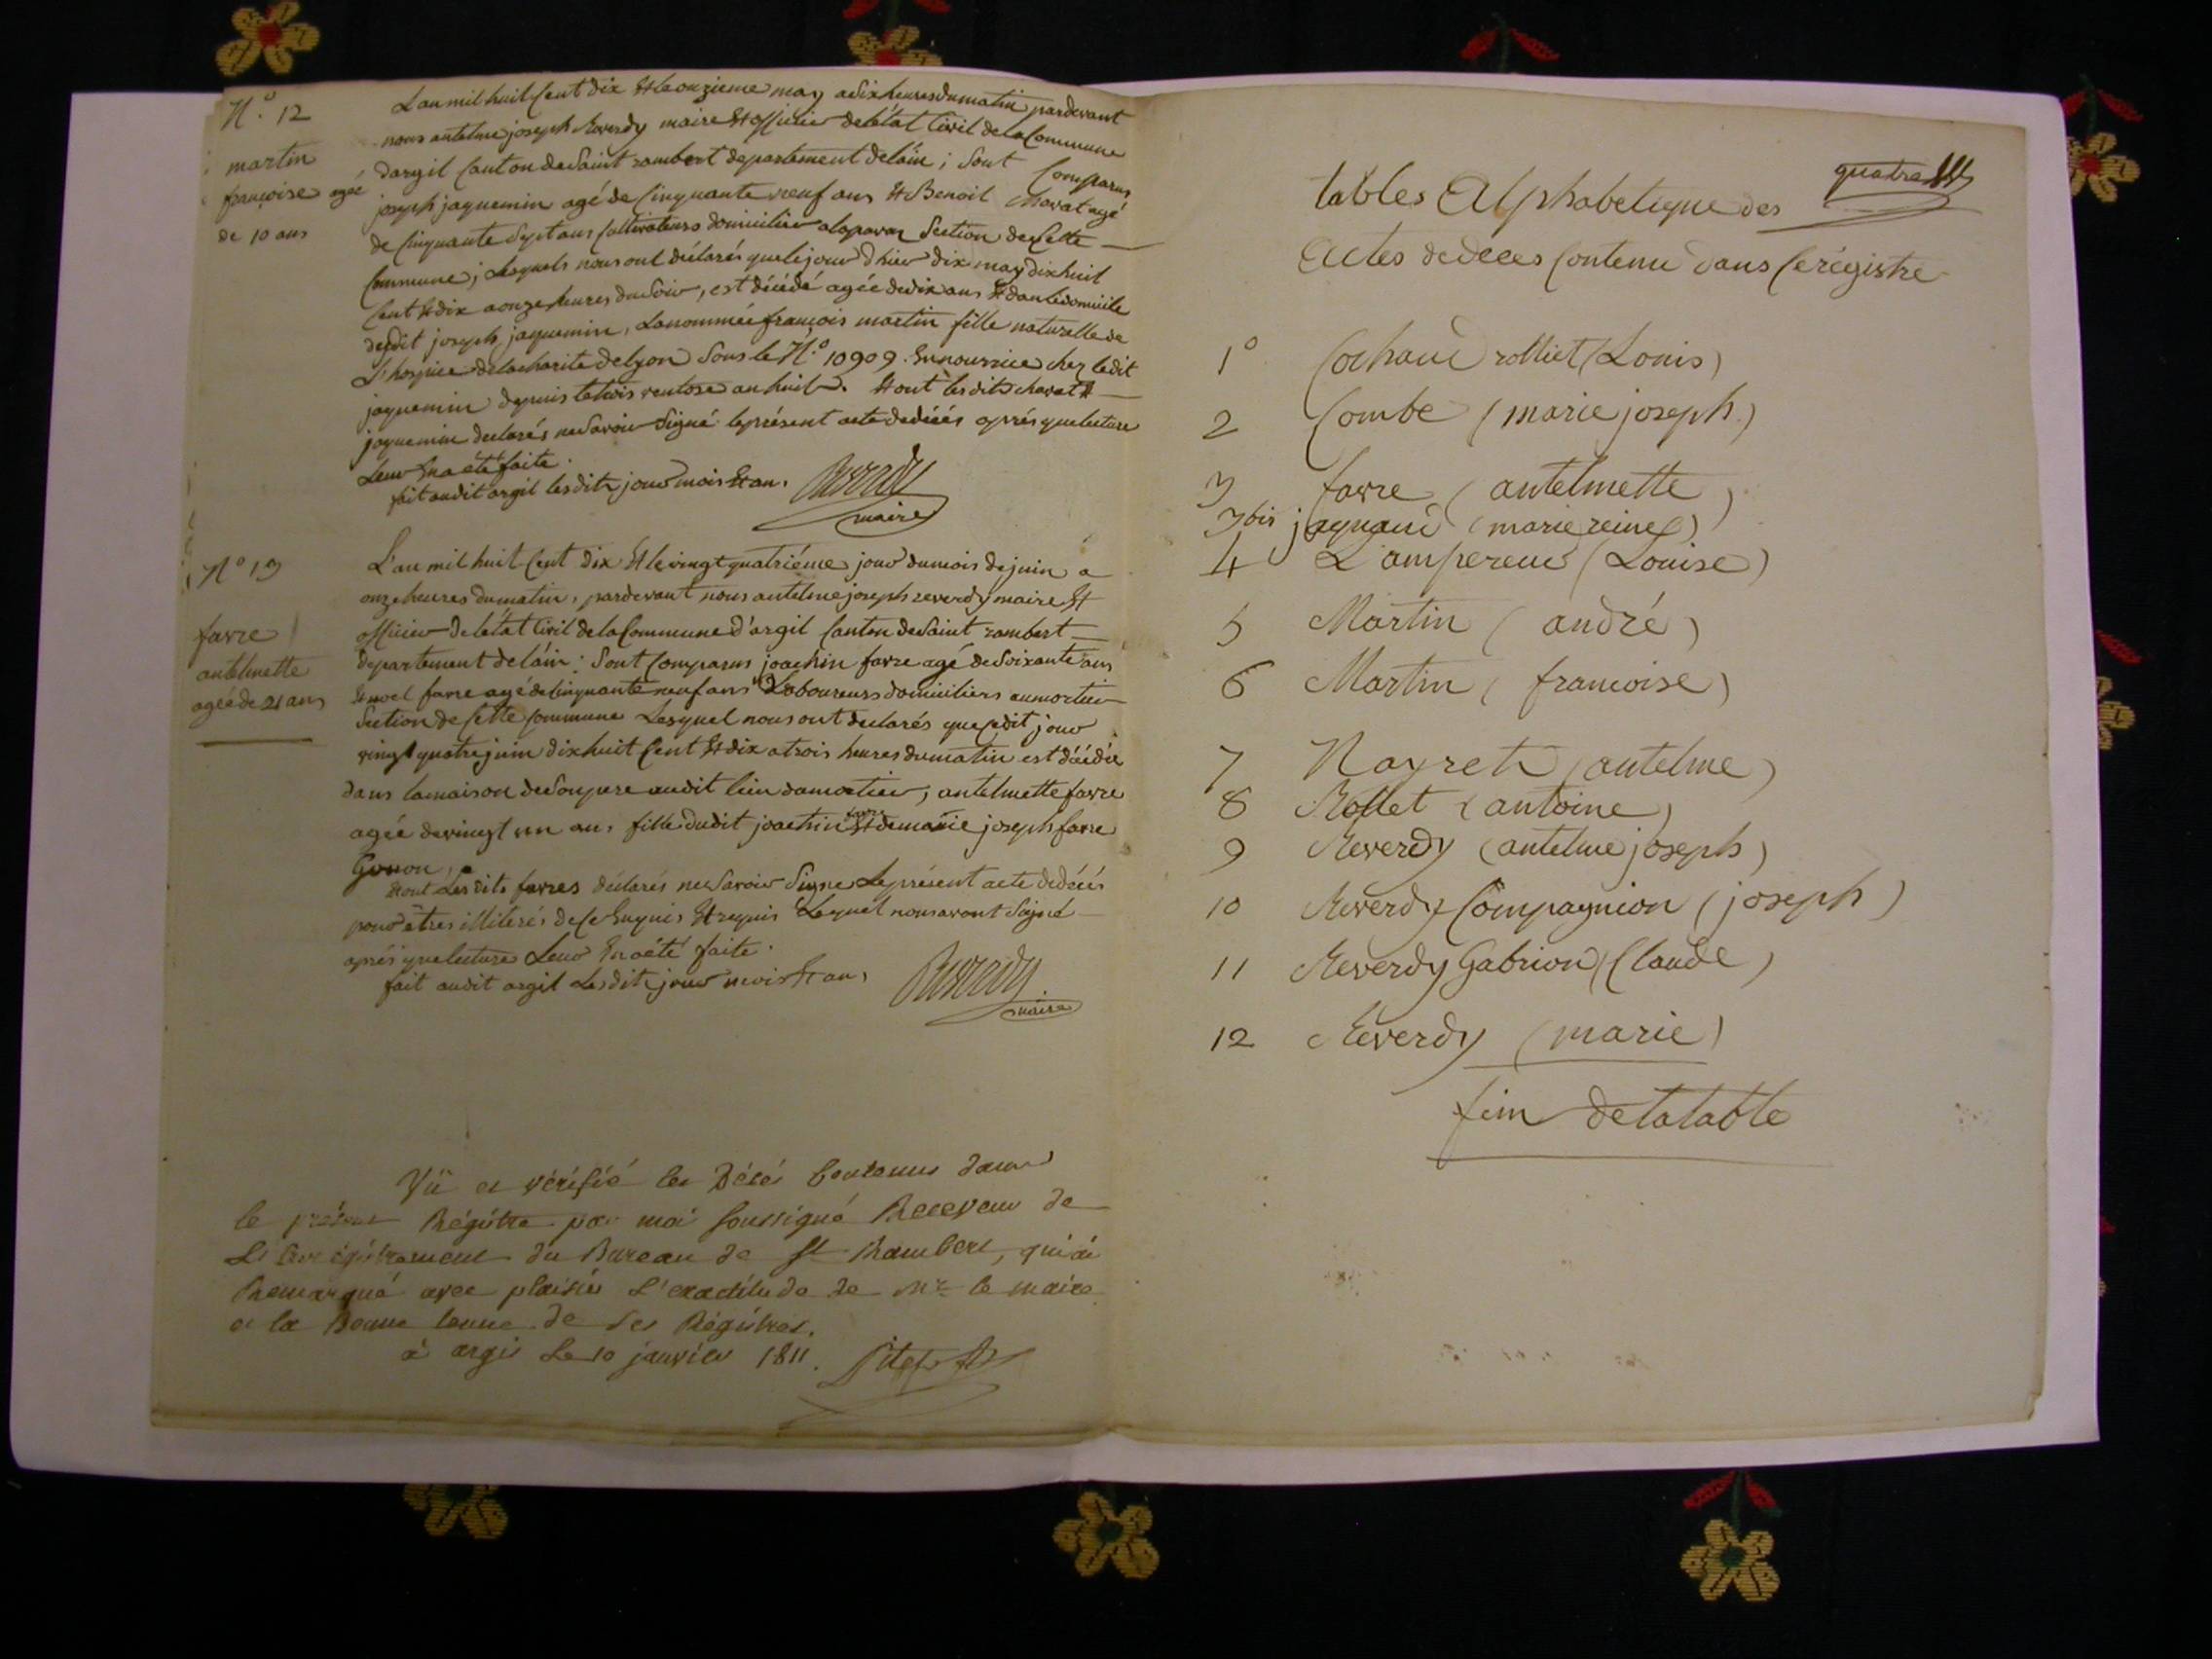 N.o 12
martin
françoise agée
de 10 ans
L'an mil huit Cent dix Et le onzieme may a dix heures du matin pardevant
nous antelme joseph Reverdy maire Et officier de l'état Civil de la Commune
dargil Canton de Saint rambert departement de láin ; Sont Comparus
joseph jaquemin agé de Cinquante neuf ans Et Benoit Chavat agé
de Cinquante Sept ans Cultivateurs domiciliés a Section de Cette
Commune ; Lesquels nous ont déclarés que le jour d'hier dix may dix huit
Cent Et dix a onze heures du Soir, est décédé agée de dix ans Et dans le domicile
dudit joseph jaquemin, La nommée françois martin fille naturelle de
L'hospice de la charite de lyon Sous le N.o 10909. En nourrice chez ledit
jaquemin depuis le trois ventose an huit. Et ont lesdits chavat Et
jaquemin declarés ne Savoir Signé le présent acte de décés aprés que lecture
Leur En a été faite.
fait audit argil lesdits jour mois Et an.
Reverdy
maire
N.o 13
favre
antelmette
agée de 21 ans
L'an mil huit Cent dix Et le vingt quatriéme jour du mois de juin a
onze heures du matin, pardevant nous antelme joseph reverdy maire Et
officier de l'état Civil de la Commune d'argil Canton de Saint rambert
departement de láin : Sont Comparus joachin favre agé de Soixante ans
Et noel favre agé de Cinquante neuf ans Laboureurs domiciliers au mortier
Section de Cette Commune Lesquel nous ont declarés que Cedit jour
vingt quatre juin dix huit Cent Et dix a trois heures du matin est décédée
dans la maison de Son pere audit lieu damortier, antelmette favre
agée de vingt un an, fille dudit joachin favre Et de marie joseph favre
Gonon,
Et ont Lesdits favres déclarés ne Savoir Signer Le présent acte de décés
pour êtres illiterés de Ce Enquis Et requis Lequel nous avont Signé
aprés que lecture Leur En a été faite.
fait audit argil Lesdits jour mois Et an,
Reverdy
maire
Vü et vérifié les Décés Contenus dans
le présent Régistre par moi Soussigné Receveur de
L'Enrégistrement du Bureau de St Rambert, qui ai
Remarqué avec plaisir L'exactitude de Mr le maire
et la Bonne tenue de Ses Régistres.
à argis Le 10 janvier 1811.
quatre
tables Alphabetique des
Actes de deces Contenu dans Ce régistre
1o Cochaud rolliet (Louis)
2 Combe (marie joseph.)
3 favre (antelmette)
3 bis jaquand (marie reine)
4 L'ampereur (Louise)
5 Martin (andré)
6 Martin (francoise)
7 Nayret (antelme)
8 Rollet (antoine)
9 Reverdy (antelme joseph)
10 Reverdy Compagnion (joseph)
11 Reverdy Gabrion (Claude)
12 Reverdy (marie)
fin de la table